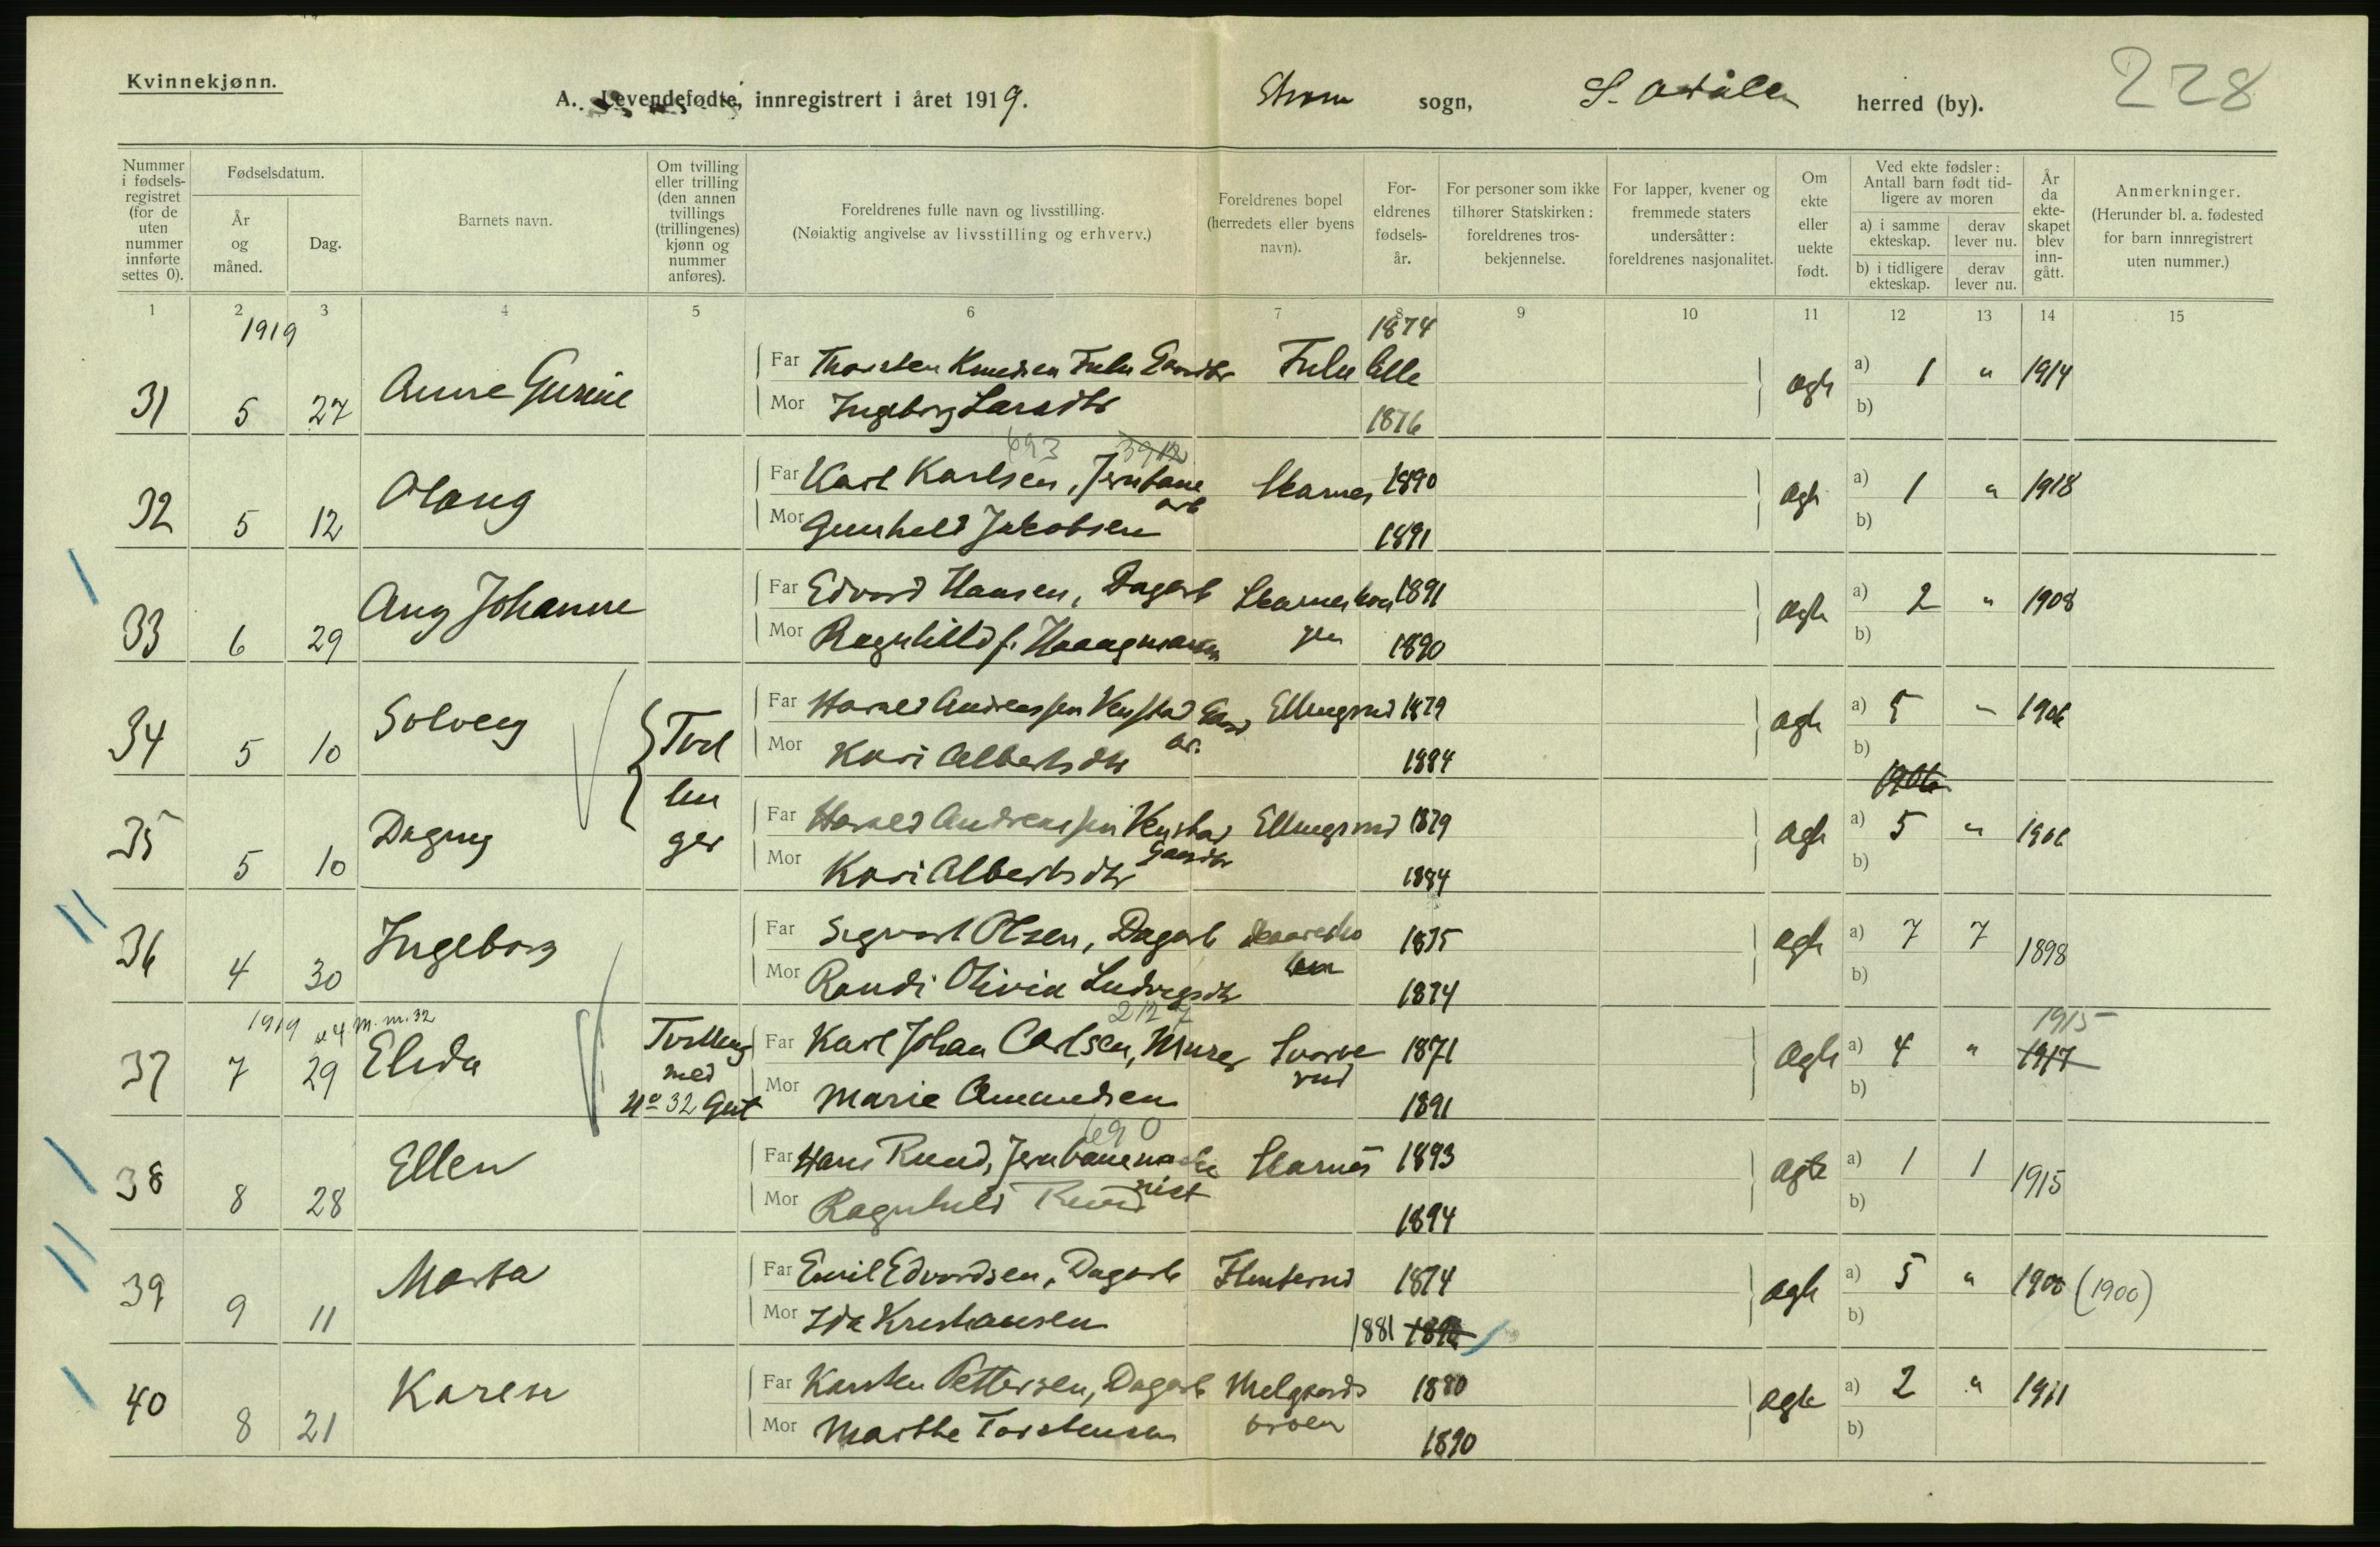 Kvinnekjønn.
A. Levendefødte, innregistrert i året 1919.
Strøm sogn, S. Odalen herred (by).
228
Nummer i fødsels-registret (for de uten nummer innførte settes 0).
Fødselsdatum.
År og måned.
Dag.
Barnets navn.
Om tvilling eller trilling (den annen tvillings (trillingenes) kjønn og nummer anføres).
Foreldrenes fulle navn og livsstilling.
(Nøiaktig angivelse av livsstilling og erhverv.)
Foreldrenes bopel (herredets eller byens navn).
For-eldrenes fødsels-år.
For personer som ikke tilhører Statskirken: foreldrenes tros-bekjennelse.
For lapper, kvener og fremmede staters undersåtter: foreldrenes nasjonalitet.
Om ekte eller uekte født.
Ved ekte fødsler: Antall barn født tid-ligere av moren
a) i samme ekteskap.
derav lever nu.
b) i tidligere ekteskap.
derav lever nu.
År da ekte-skapet blev inn-gått.
Anmerkninger.
(Herunder bl. a. fødested for barn innregistrert uten nummer.)
1 2 3 4 5 6 7 8 9 10 11 12 13 14 15
1919
1874
31 5 27 Anne Gurine Far Thorsten Knudsen Fulu Gaardbr Fulu ægte a) 1 " 1914
Mor Ingeborg Larsdtr 1876 b)
693 3912
32 5 12 Olaug Far Karl Karlsen, Jernbane arb Skarnes 1890 ægte a) 1 " 1918
Mor Gunhild Jakobsen 1891 b)
33 6 29 Aug Johanne Far Edvard Hansen, Dagarb 1891 ægte a) 2 " 1908
Mor Ragnhild f. 1890 b)
34 5 10 Solveig Tvil Far Harald Andreassen Venstad Ellingsrud 1879 ægte a) 5 " 1906
Mor Kari Albertsdtr 1884 b)
1906
lin
35 5 10 Dagny ger Far Harald Andreassen Venstad Gaardbr Ellingsrud 1879 ægte a) 5 " 1906
Mor Kari Albertsdtr 1884 b)
36 4 30 Ingeborg Far Sigvart Olsen, Dagarb 1875 ægte a) 7 7 1898
Mor Randi Olivia Ludvigsdtr 1874 b)
1919 m.32 212 1915
37 7 29 Elida Tvilling Far Karl Johan Carlsen, Murer 1871 ægte a) 4 " 1917
med
No 32 Gut Mor Marie Amundsen 1891 b)
690
38 8 28 Ellen Far Hans Ruud, Jernbanemaskinist Skarnes 1893 ægte a) 1 1 1915
Mor Ragnhild Ruud 1894 b)
39 9 11 Marta Far Emil Edvardsen, Dagarb 1874 ægte a) 5 " 1900 (1900)
Mor Ida Kristiansen 1881 b)
40 8 21 Karen Far Karsten Pettersen, Dagarb Melgaards 1880 ægte a) 2 " 1911
Mor Marthe Torstensen 1890 b)